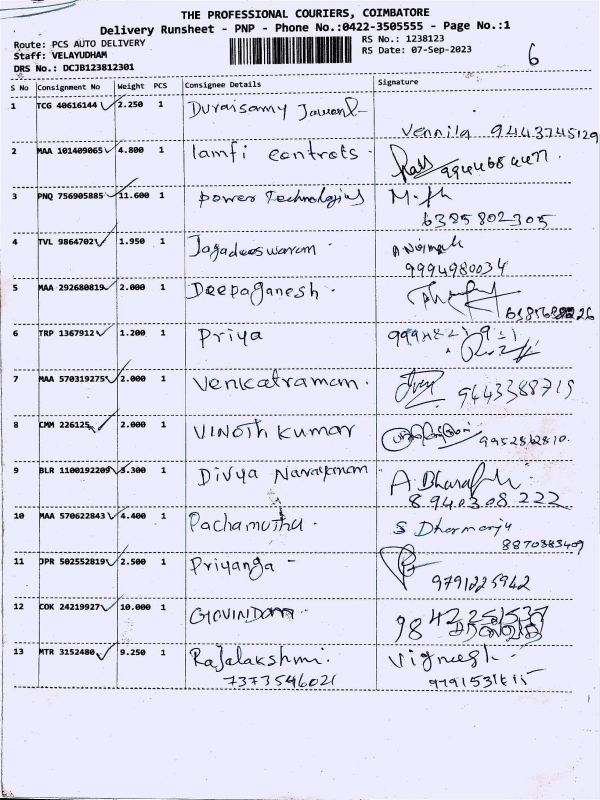 THE PROFESSIONAL COURIERS, COIMBATORE
Delivery Runsheet - PNP - Phone No.:0422-3505555 - Page No.:1
Route: PCS AUTO DELIVERY RS No.: 1238123
Staff: VELAYUDHAM RS Date: 07-Sep-2023 6
DRS No.: DCJB123812301
S No Consignment No Weight PCS Consignee Details Signature
1 TCG 40616144 2.250 1 Duraisamy
Vennila 9443745129
2 MAA 101409065 4.800 1 lamfi controls.
3 PNQ 756905885 11.600 1 power Technologies
6385802305
4 TVL 9864702 1.950 1 Jagadeeswaram.
9994980034
5 MAA 292680819 2.000 1 Deepaganesh.
6 TRP 1367912 1.200 1 Priya
7 MAA 570319275 2.000 1 Venkatramam. 9443388719
8 CMM 226125 2.000 1 VINOTH KUMAR
9 BLR 1100192209 3.300 1 Divya Narayanam
8940308222
10 MAA 570622843 4.400 1 Pachamuthu. S Dharmaraju
8870383409
11 JPR 502552819 2.500 1 Priyanga -
9791225942
12 COK 24219927 10.000 1
13 MTR 3152480 9.250 1 Rajalakshmi. Vignesh.
7373546021